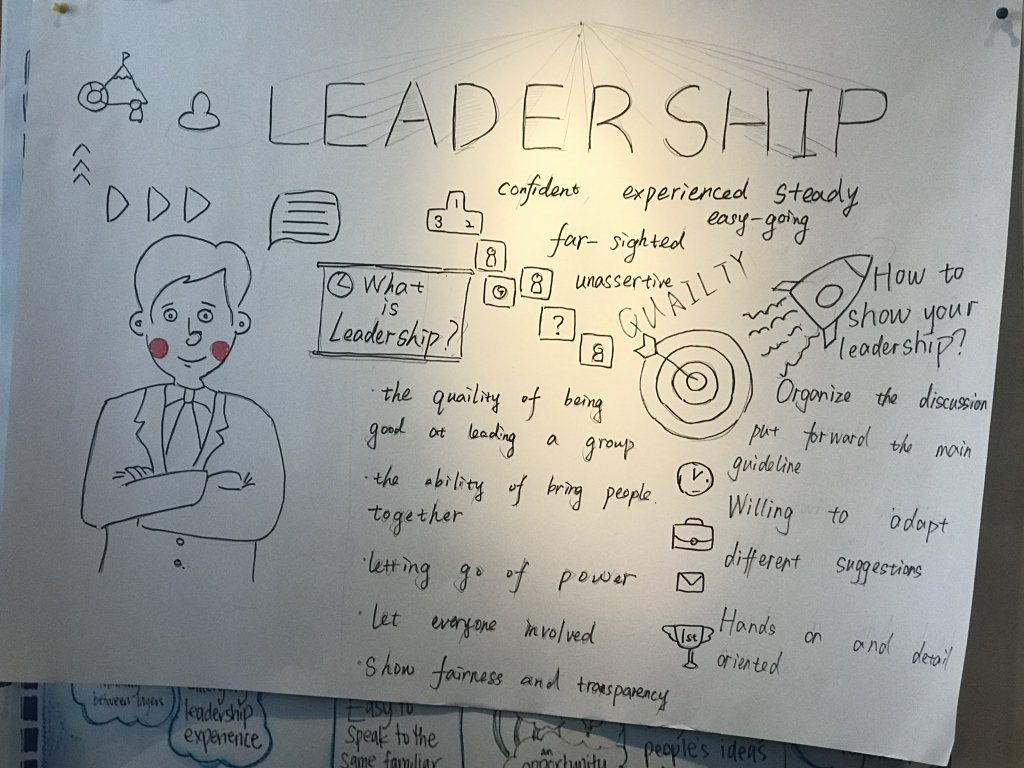 LEADERSHIP
confident experienced steady
easy-going
far-sighted
unassertive
QUAILTY
1
3 2
8
8
?
8
What
is
Leadership?
· the quaility of being
good at leading a group
· the ability of bring people.
together
· letting go of power
· Let everyone involved
· Show fairness and transparency
How to
show your
leadership?
Organize the discussion
put forward the main
guideline
Willing to adapt
different suggestions
1st
Hands on and detail
oriented
between
leadership
experience
Easy to
Speak to the
same familiar
an
opportunity
people's ideas